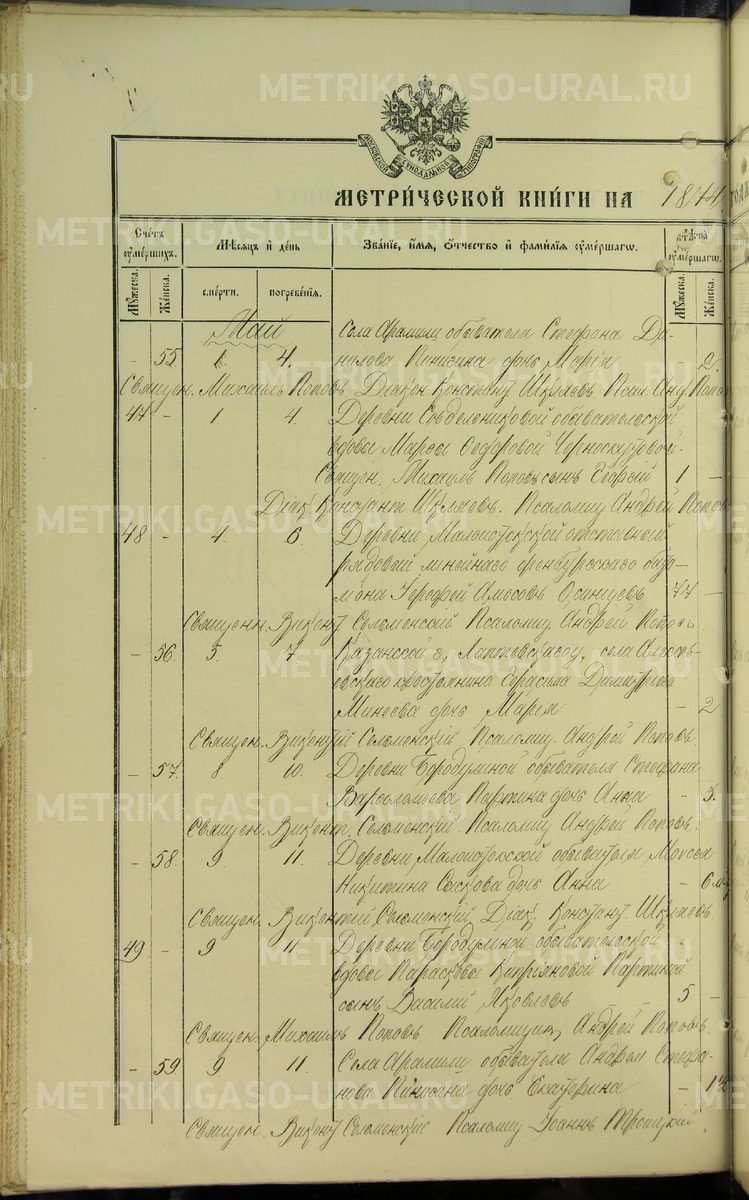 METRIKI.GASO-URAL.RU
МОСКОВСКОЙ СѴНОДАЛЬНОЙ ТИПОГРАФІИ
МЕТРИ́ЧЕСКОЙ КНИ́ГИ НА 1874
Сче́тъ ᲂу҆ме́ршихъ.
Мѣ́сяцъ и҆ де́нь
Зва́нїе, и҆́мѧ, ѻ҆́тчество и҆ фами́лїѧ ᲂу҆ме́ршагѡ.
Лѣ̑та ᲂу҆ме́ршагѡ.
Му́жеска.
Же́нска.
сме́рти.
погребе́нїѧ.
Му́жеска.
Же́нска.
Май
Села Арамили обывателя Стефана Да-
- 55 1 4. нилова дочь Марія - 2.
Священ. Михаилъ Поповъ Діакон. Констант. Шкляевъ Псал. Анд. Попов
47 - 1 4. Деревни обывательской
вдовы Марѳы Ѳедоровой
Священ. Михаилъ Поповъ сынъ 1 -
Діак. Констант. Шкляевъ. Псаломщ. Андрей Попов
48 - 4. 6 Деревни Малоистокской отставный
рядовый линейнаго оренбургскаго бата-
ліона Амосовъ Осинцевъ 77 -
Священ. Викент. Селеменскій Псаломщ. Андрей Поповъ
- 56. 5. 7 Казанской г., Лаишевскаго у., села
крестьянина Герасима Димитріева
Минеева дочь Марія - 2
Священ. Викентій Селеменскій Псаломщ. Андрей Поповъ
- 57. 8. 10. Деревни Бородулиной обывателя Стефана
Варѳоломеева Партина дочь Анна - 3.
Священ. Викент. Селеменскій. Псаломщ. Андрей Поповъ.
- 58. 9. 11. Деревни Малоистокской обывателя Моисея
Никитина дочь Анна - 6 м.
Священ. Викентій Селеменскій, Діак. Констант. Шкляевъ
49 - 9 11 Деревни Бородулиной обывательской
вдовы Параскевы Кипріяновой Партиной
сынъ Василій Яковлевъ 5 -
Священ. Михаилъ Поповъ. Псаломщикъ Андрей Поповъ.
- 59 9. 11. Села Арамили обывателя Андрея Стефа-
нова дочь Екатерина - 1½
Священ. Викент. Селеменскій Псаломщ. Іоаннъ Троицкій.